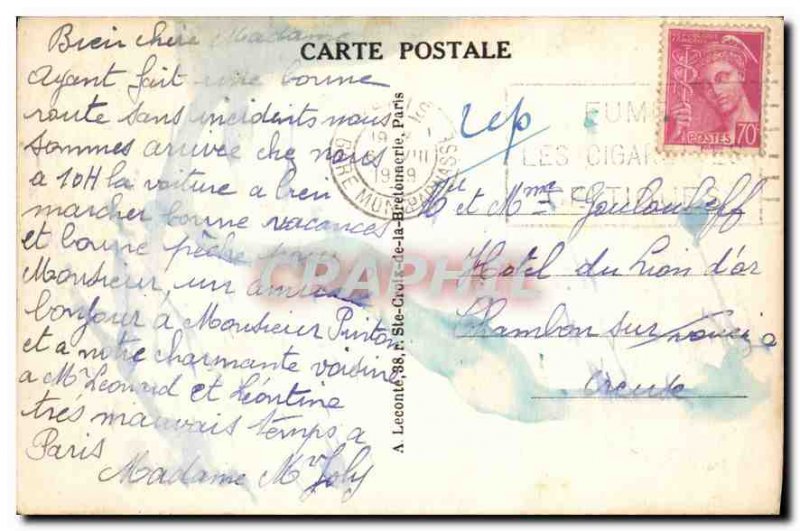 CARTE POSTALE
Bien chère Madame
Ayant fait une bonne
route sans incidents nous
sommes arrivée che nous
a 10H la voiture a bien
marcher bonne vacances
et bonne pêche pour
Monsieur, un amicale
bonjour à Monsieur Pinton
et a notre charmante voisine
a Mr Leonard et Léontine
très mauvais temps a
Paris
Madame Mr Joly
A. Leconte, 38, r. Ste-Croix-de-la-Bretonnerie, Paris
rep
GARE MONTPARNASSE
FUMEZ
LES CIGARETTES
POSTES 70c
Mr et Mme Gouloubeff
Hotel du Lion d'or
Chambon sur
Creuse
CRAPHIL